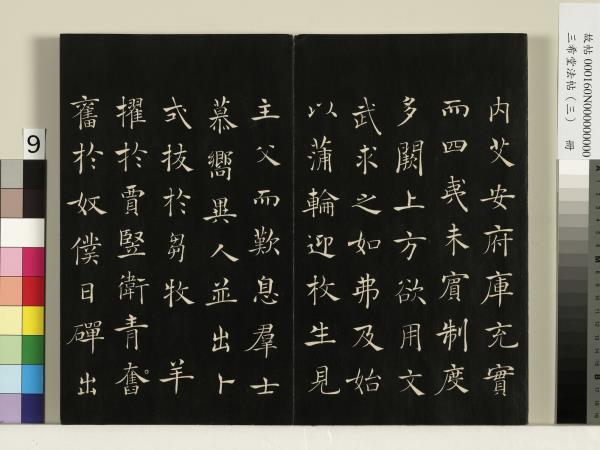 故帖 000160N000000000
三希堂法帖（三） 冊
内艾安府庫充實
而四夷未賓制度
多闕上方欲用文
武求之如弗及始
以蒲輪迎枚生見
主父而歎息羣士
慕嚮異人並出卜
式拔於芻牧 羊
擢於賈豎衛青奮
奮於奴僕日磾出
9